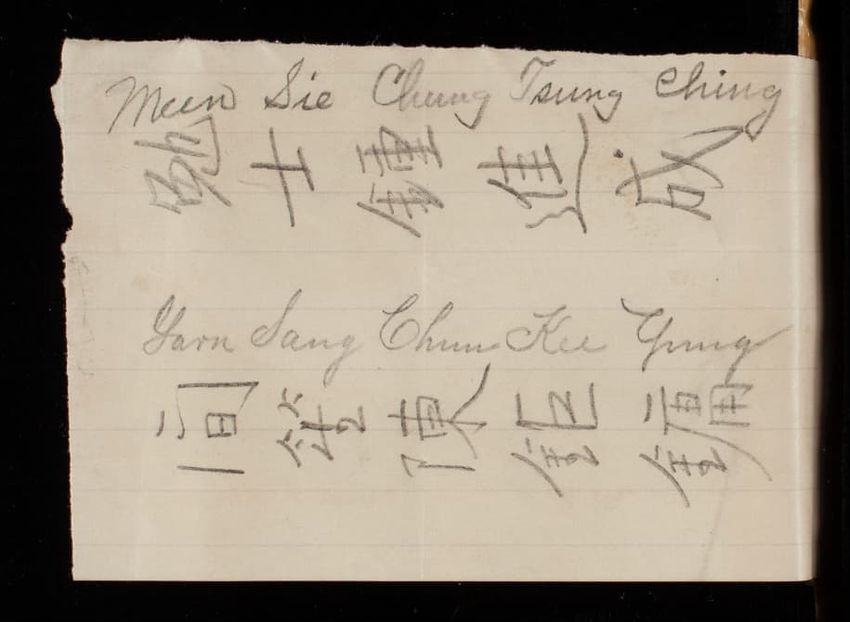 Meen Sie Chung Tsung Ching
勉 士 鍾 進 成
Yarn Sang Chun Kee Yung
間 陳 鉅 鏞